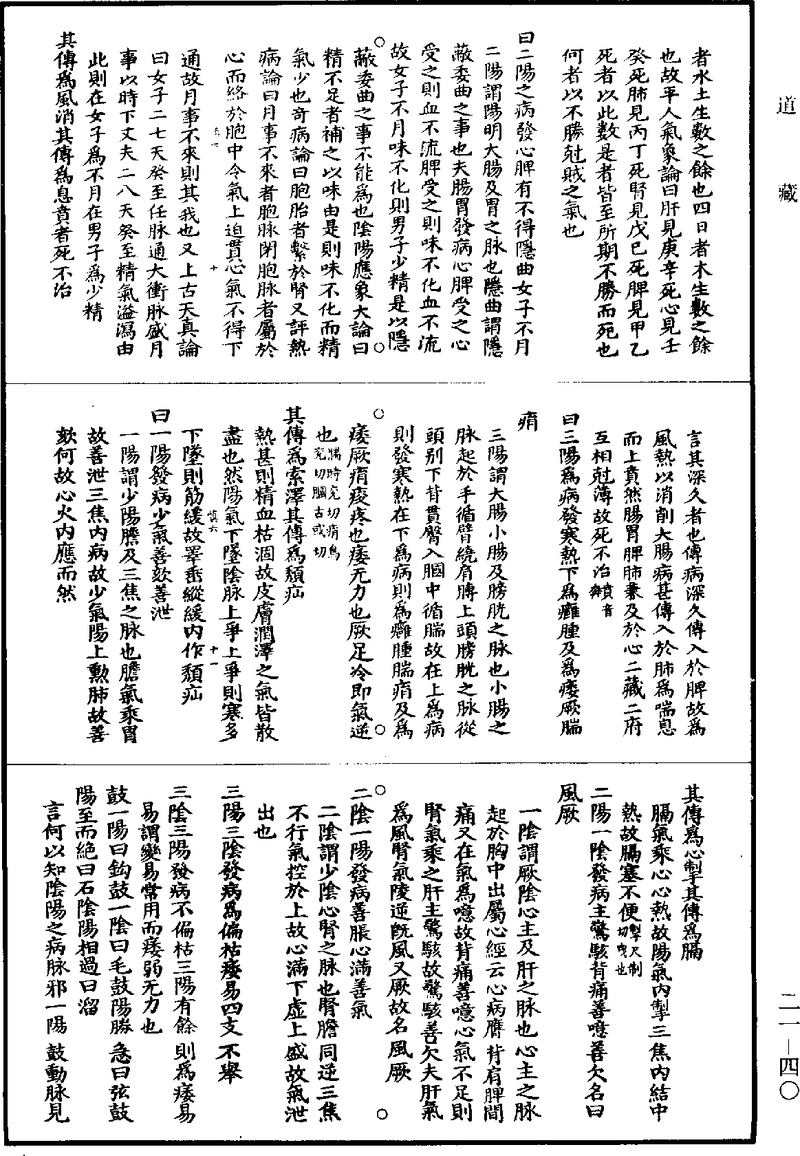 道藏
者水土生數之餘也四日者木生數之餘
也故平人氣象論曰肝見庚辛死心見壬
癸死肺見丙丁死腎見戊巳死脾見甲乙
死者以此數是者皆至所期不勝而死也
何者以不勝尅賊之氣也
曰二陽之病發心脾有不得隱曲女子不月
二陽謂陽明大腸及胃之脉也隱曲謂隱
蔽委曲之事也夫腸胃發病心脾受之心
受之則血不流脾受之則味不化血不流
故女子不月味不化則男子少精是以隱
蔽委曲之事不能爲也陰陽應象大論曰
精不足者補之以味由是則味不化而精
氣少也奇病論曰胞胎者繫於腎又評熱
病論曰月事不來者胞脉閉胞脉者屬於
心而絡於胞中令氣上迫貫心氣不得下
通故月事不來則其我也又上古天真論
曰女子二七天癸至任脉通大衝脉盛月
事以時下丈夫二八天癸至精氣溢瀉由
此則在女子爲不月在男子爲少精
其傳爲風消其傳爲息賁者死不治
言其深久者也傳病深久傳入於脾故爲
風熱以消削大腸病甚傳入於肺爲喘息
而上賁然腸胃脾肺兼及於心二藏二府
互相尅薄故死不治賁音奔
曰三陽爲病發寒熱下爲癰腫及爲痿厥腨
㾓
三陽謂大腸小腸及膀胱之脉也小腸之
脉起於手循臂繞肩髆上頭膀胱之脉從
頭别下背貫臀入膕中循腨故在上爲病
則發寒熱在下爲病則爲癰腫腨㾓及爲
痿厥㾓痠疼也痿无力也厥足冷即氣逆
也腨時兗切㾓烏兗切膕古或切
其傳爲索澤其傳爲頹疝
熱甚則精血枯涸故皮膚潤澤之氣皆散
盡也然陽氣下墜陰脉上爭上爭則寒多
下墜則筋緩故睪垂縱緩内作頹疝
曰一陽發病少氣善欬善泄
一陽謂少陽膽及三焦之脉也膽氣乘胃
故善泄三焦内病故少氣陽上熏肺故善
欬何故心火内應而然
其傳爲心掣其傳爲膈
膈氣乘心心熱故陽氣内掣三焦内結中
熱故膈塞不便掣尺制切曳也
二陽一陰發病主驚駭背痛善噫善欠名曰
風厥
一陰謂厥陰心主及肝之脉也心主之脉
起於胸中出屬心經云心病膺背肩脾間
痛又在氣爲噫故背痛善噫心氣不足則
腎氣乘之肝主驚駭故驚駭善欠夫肝氣
爲風腎氣陵逆既風又厥故名風厥
二陰一陽發病善脹心滿善氣
二陰謂少陰心腎之脉也腎膽同逆三焦
不行氣控於上故心滿下虚上盛故氣泄
出也
三陽三陰發病爲偏枯痿易四支不舉
三陰三陽發病不偏枯三陽有餘則爲痿易
易謂變易常用而痿弱无力也
鼓一陽曰鈎鼓一陰曰毛鼓陽勝急曰弦鼓
陽至而絶曰石陰陽相過曰溜
言何以知陰陽之病脉邪一陽鼓動脉見
二一—四〇